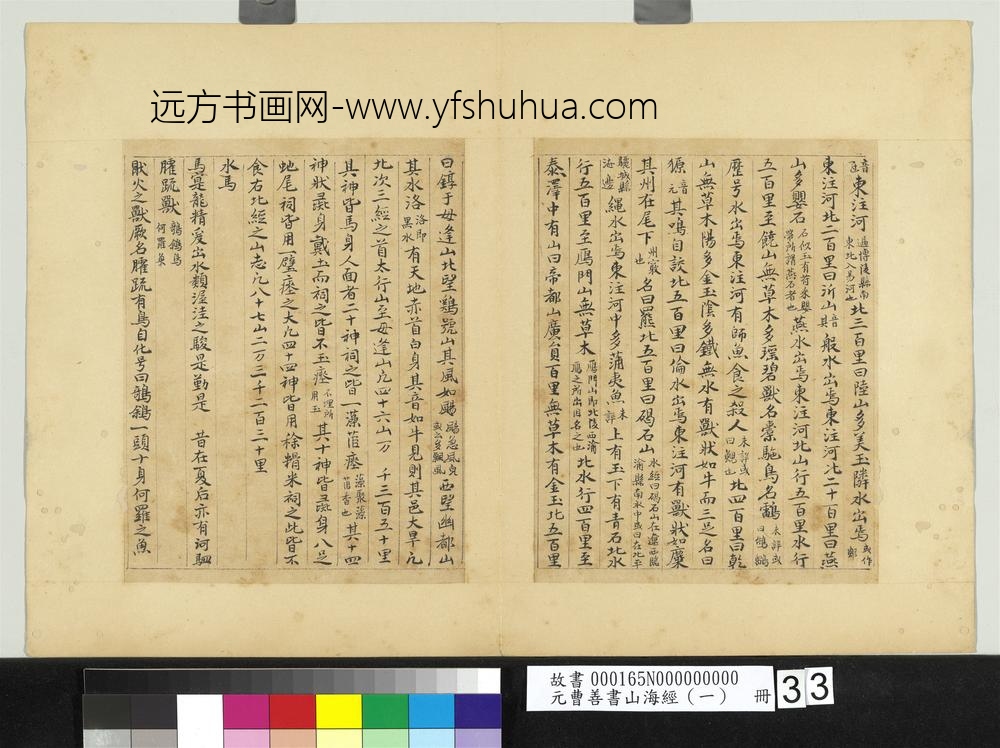 远方书画网-www.yfshuhua.com
音 東注河 過博陵縣南東北入易河也 北三百里曰陸山多美玉隣水出焉 或作鄭
東注河北二百里曰沂山 音其 般水出焉東注河北二十百里曰燕
山多嬰石 石似玉有苻采嬰帶所謂燕石者也 燕水出焉東注河北山行五百里水行
五百里至饒山無草木多瑶碧獸名橐駞鳥名鶹 未詳或曰鵂鶹
歷号水出焉東注河有師魚食之殺人 未詳或曰鯢也 北四百里曰乾
山無草木陽多金玉陰多鐵無水有獸狀如牛而三足名曰
獂 音元 其鳴自詨北五百里曰倫水出焉東注河有獸狀如麋
其州在尾下 州竅也 名曰羆北五百里曰碣石山 水經曰碣石山在遼西臨渝縣南水中或曰在北平
驪城縣海邊 繩水出焉東注河中多蒲夷魚 未詳 上有玉下有青石北水
行五百里至鴈門山無草木 鴈門山即北陵西渝鴈之所出因名之也 北水行四百里至
泰澤中有山曰帝都山廣員百里無草木有金玉北五百里
曰錞于毋逢山北望鷄號山其風如颺 颺急風皃或云多飄風 西望幽都山
其水洛 洛即黑水 有天地赤首白身其音如牛見則其邑大旱凡
北次三經之首太行山至毋逢山凡四十六山万千三百五十里
其神皆馬身人面者二十神祠之皆一藻茝瘞 藻聚藻茝香也 其十四
神狀彘身戴玉而祠之皆不玉瘞 不埋所用玉 其十神皆彘身八足
虵尾祠皆用一璧瘞之大凡四十四神皆用稌糈米祠之此皆不
食右北經之山志凡八十七山二万三千二百三十里
水馬
馬實龍精爰出水類渥洼之駿是勤是 昔在夏后亦有河駟
䑏疏獸 鵸鵌鳥何羅奠
猒火之獸厥名䑏疏有鳥自化号曰鵸鵌一頭十身何羅之魚
故書 000165N000000000
元曹善書山海經(一) 冊
33